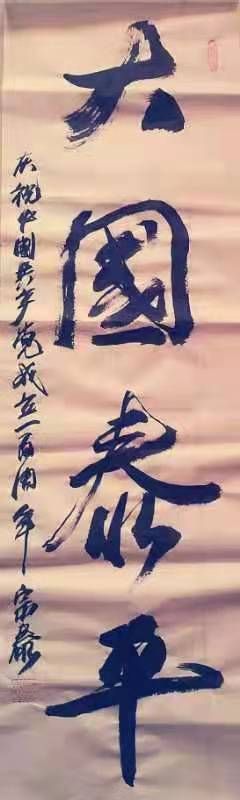 大國泰平
庆祝中国共产党成立一百周年 宗泰